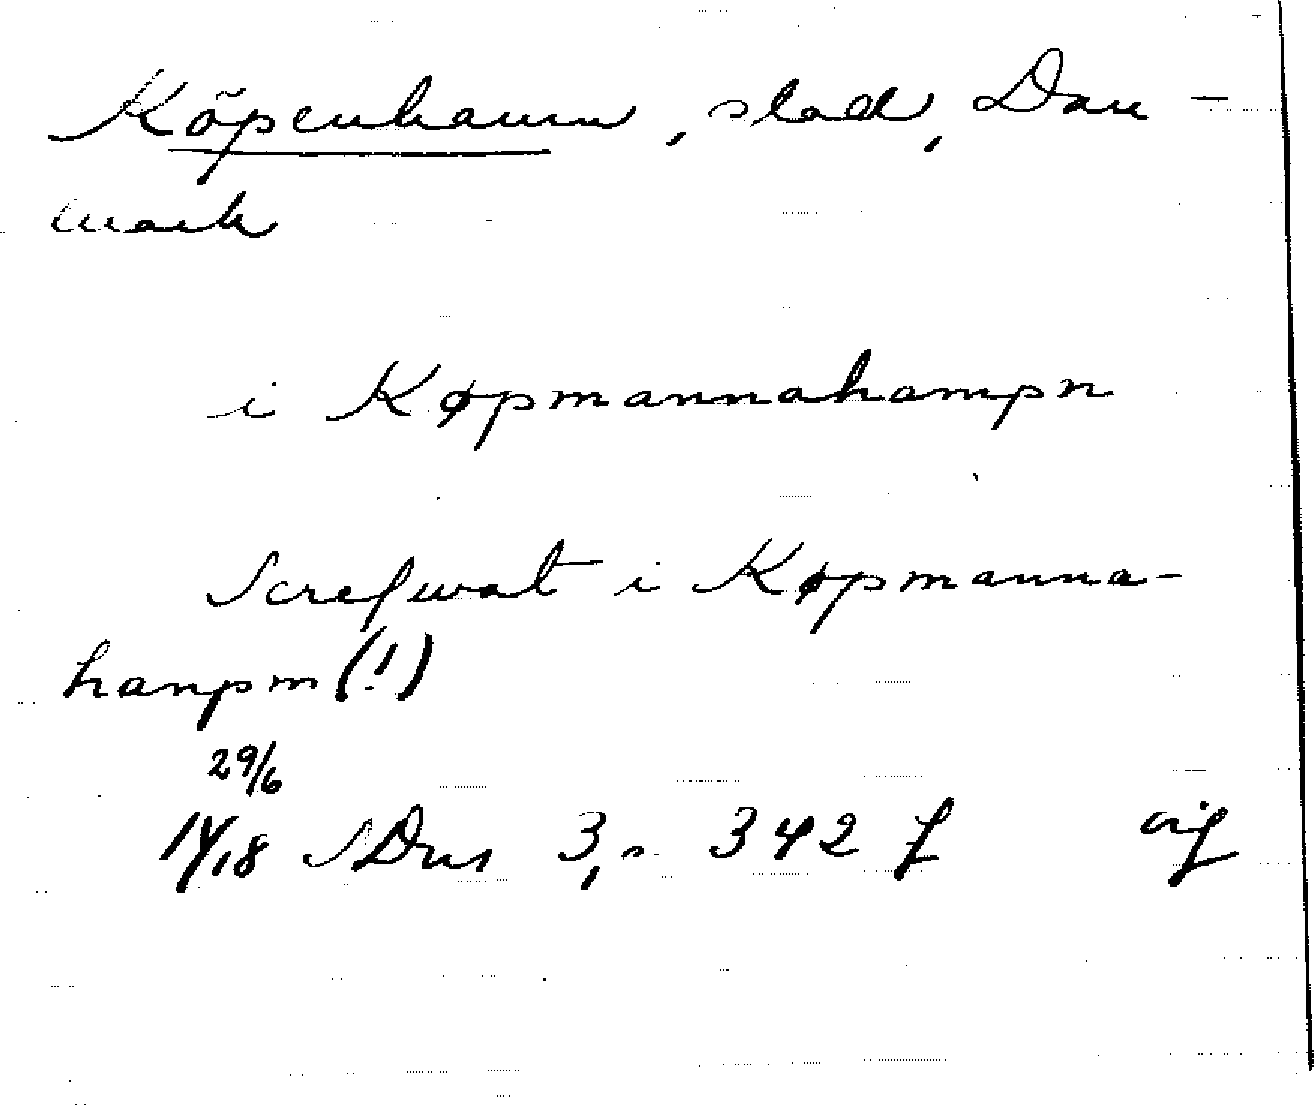 Köpenhamn, stad, Dan-
mark
i Køpmannahampn
Screfwat i Køpmanna-
hanpm(!)
29/6
1418 SDns 3, s. 342 f or